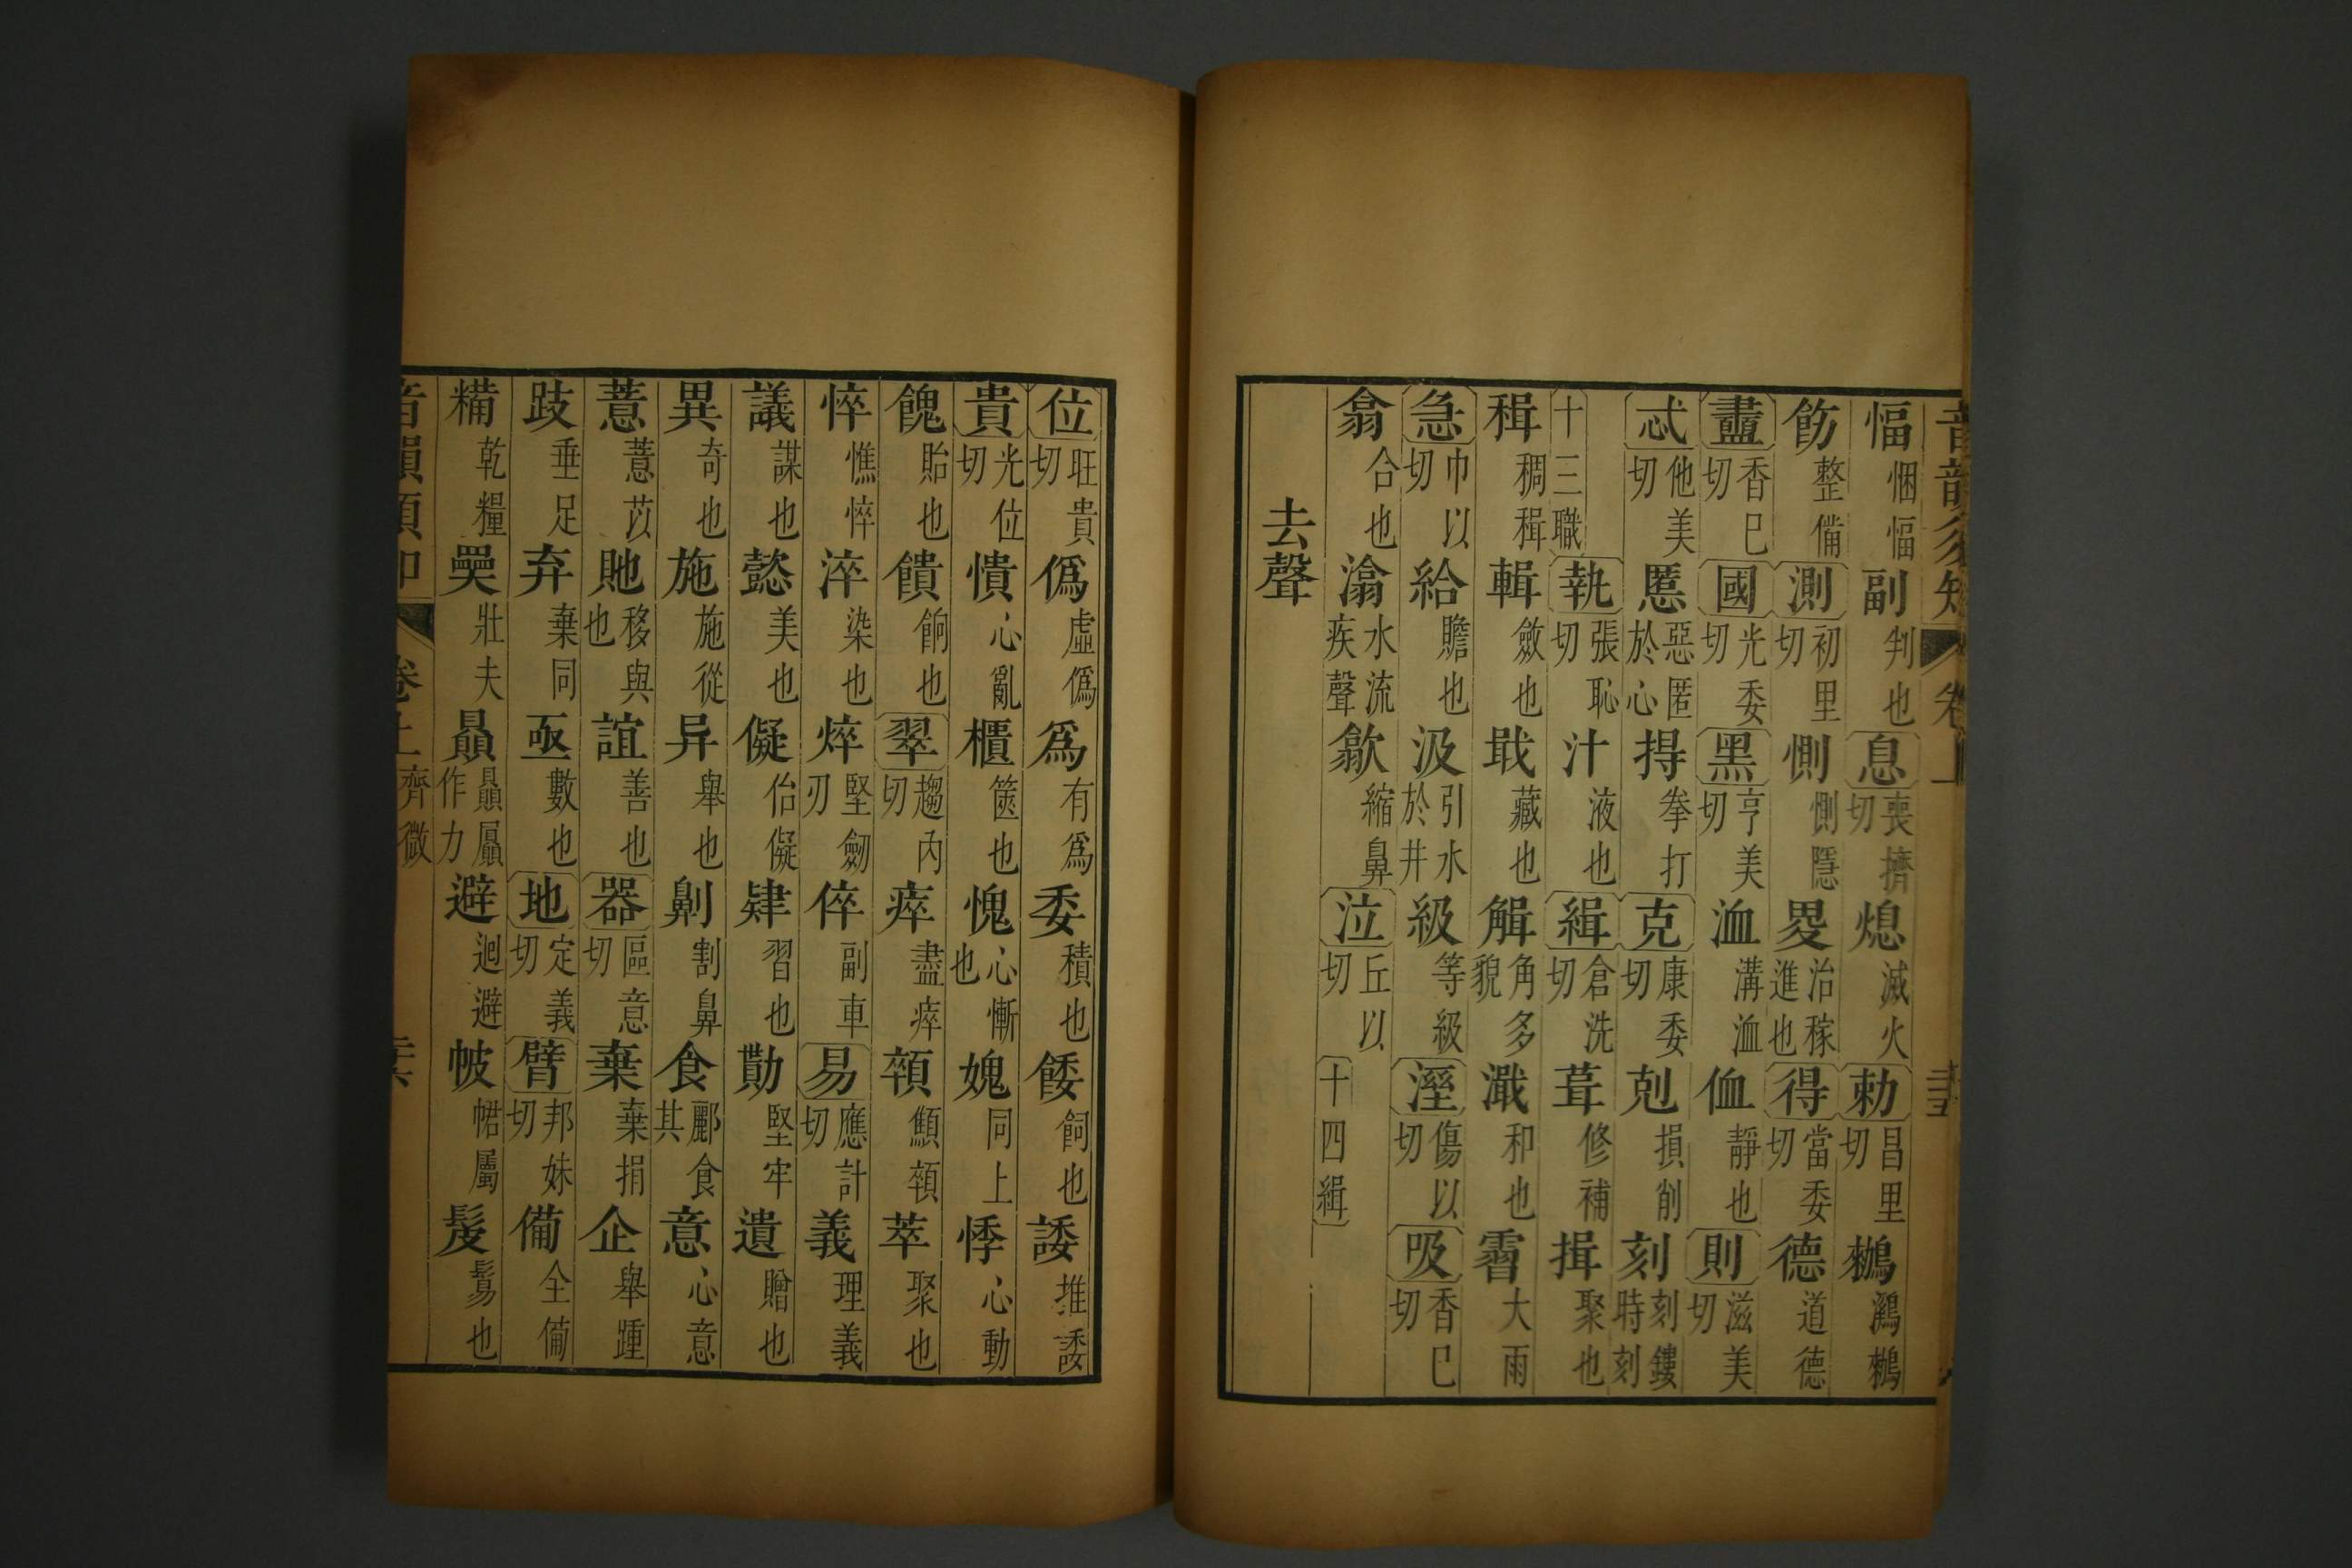 音韻須知 卷上
愊悃愊副判也息喪擠切熄滅火勅昌里切鶒鸂鶒
飭整備測初里切惻惻隱畟治稼進也得當委切德道德
衋香巳切國光委切黑亨美切洫溝洫侐靜也則滋美切
忒他美切慝惡匿於心㝵拳打克康委切剋損削刻刻鏤時刻
十三職執張恥切汁液也緝倉洗切葺修補揖聚也
稽稠稽輯斂也戢藏也觲角多貌濈和也霫大雨
急巾以切給贍也汲引水於井級等級溼傷以切吸香巳切
翕合也潝水流疾聲歙縮鼻泣丘以切十四緝
去聲
位旺貴切僞虛僞爲有爲委積也餧飼也諉推諉
貴光位切憒心亂櫃篋也愧心慚也媿同上悸心動
餽貽也饋餉也翠趨內切瘁盡瘁顇顦顇萃聚也
悴憔悴淬染也焠堅劒刃倅副車易應計切義理義
議謀也懿美也儗佁儗肄習也勩堅牢遺贈也
異奇也施施從异舉也劓割鼻食酈食其意心意
薏薏苡貤移與也誼善也器區意切棄棄捐企舉踵
跂垂足弃棄同亟數也地定義切臂邦妹切備全備
糒乾糧奰壯夫贔贔屭作力避迴避帔帬屬髲髢也
音韻須知 卷上 齊微